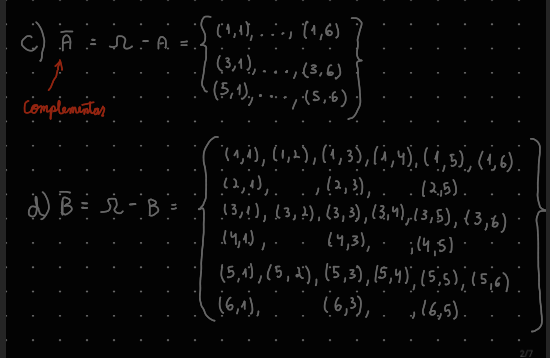 { (1,1), ..., (1,6)
c) A̅ = Ω - A = (3,1), ..., (3,6)
(5,1), ..., (5,6) }
Complementos
{ (1,1), (1,2), (1,3), (1,4), (1,5), (1,6)
(2,1), , (2,3), (2,5)
d) B̅ = Ω - B = (3,1), (3,2), (3,3), (3,4), (3,5), (3,6)
(4,1), (4,3), , (4,5)
(5,1), (5,2), (5,3), (5,4), (5,5), (5,6)
(6,1), (6,3), , (6,5) }
2/7